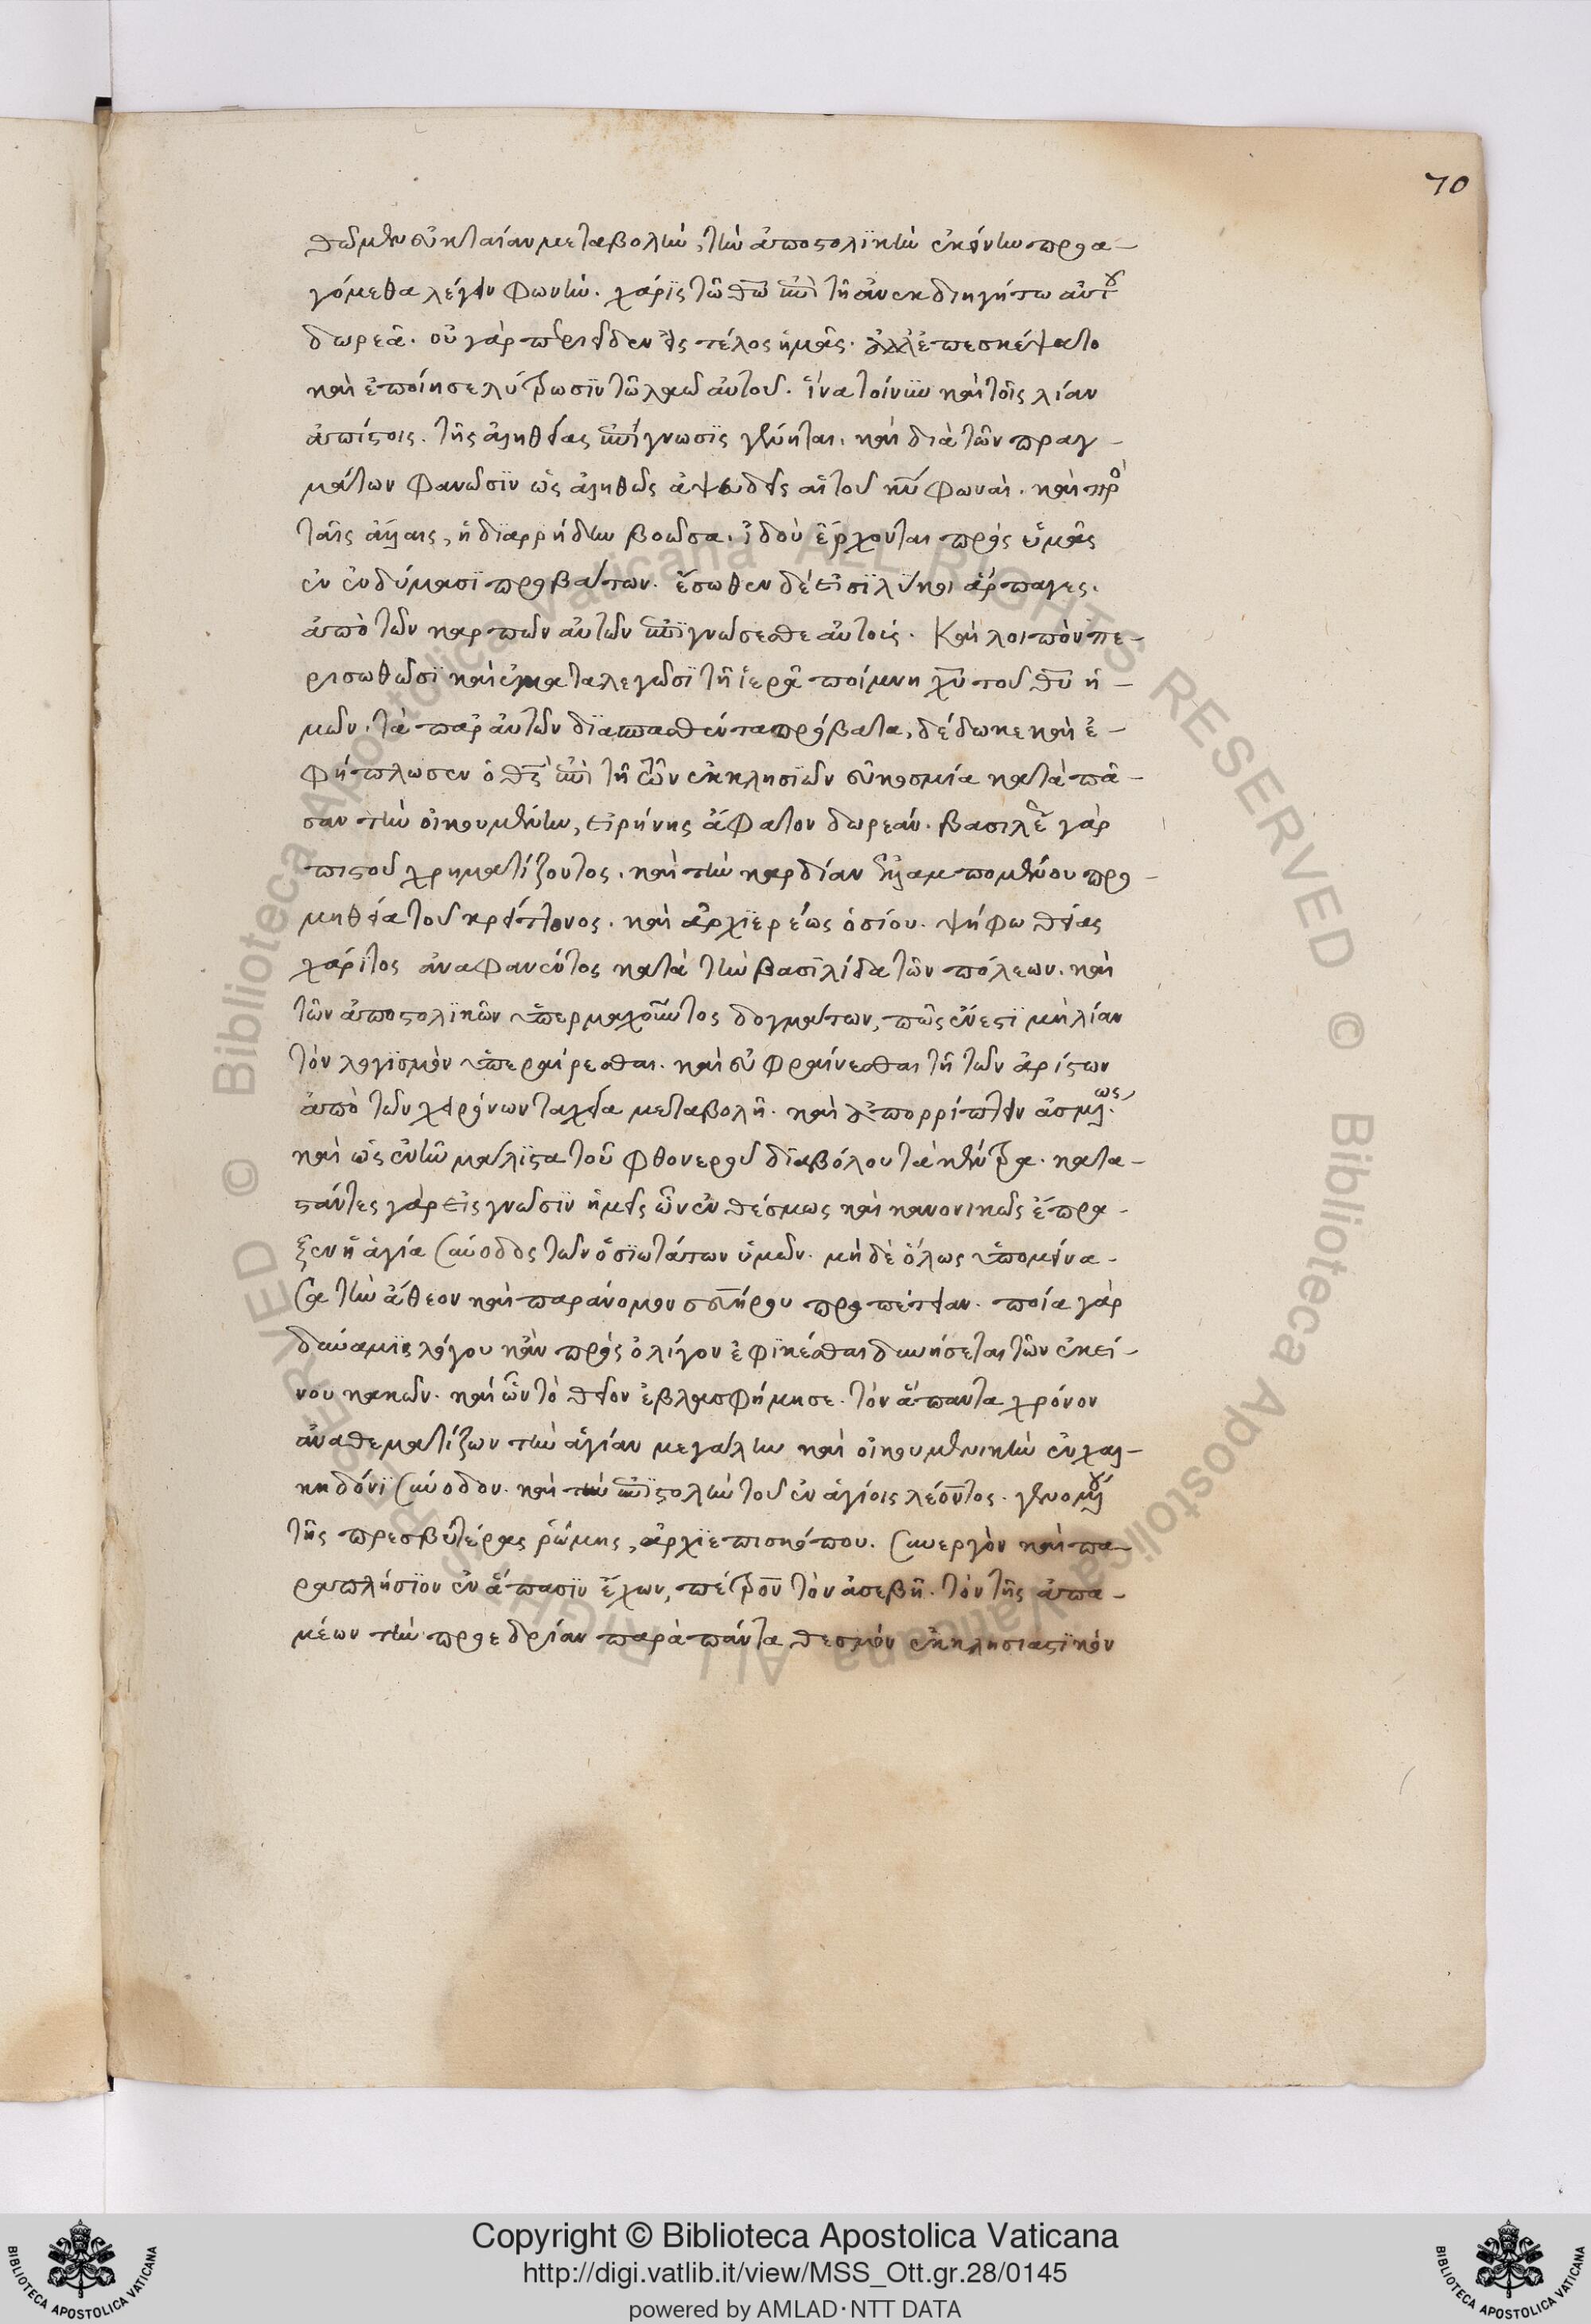 70
θῶμεν εὐκταίαν μεταβολὴν, τὴν ἀποστολϊκὴν ἐκείνην προα-
γόμεθα λέγειν φωνὴν. χάρϊς τῶ θῶ ἐπὶ τῆ ἀνεκδιηγήτω αὐτοῦ
δωρεᾶ. οὐ γὰρ περιεῖδεν εἰς τέλος ἡμᾶς. ἀλλ' ἐπεσκέψατο
καὶ ἐποίησε λύτρωσϊν τῶ λαῶ αὐτοῦ. ἵνα τοίνϋν καὶ τοῖς λίαν
ἀπίστοις. τῆς ἀληθείας ἐπίγνωσϊς γένηται. καὶ διὰ τῶν πραγ-
μάτων φανῶσϊν ὡς ἀληθῶς ἀψευδεῖς αἱ τοῦ κῦ φωναὶ. καὶ πρὸ
ταῖς ἄλλαις, ἡ διαρρήδην βοῶσα. ἰδοὺ ἔρχονται πρὸς ὑμᾶς
ἐν ἐνδύμασϊ προβάτων. ἔσωθεν δέ εἰσϊ λύκοι ἅρπαγες.
ἀπὸ τῶν καρπῶν αὐτῶν ἐπϊγνώσεσθε αὐτοὺς. Καὶ λοιπὸν πε-
ρισωθῶσϊ καὶ ἐγκαταλεγῶσϊ τῆ ἱερᾶ ποίμνη χῦ τοῦ θῦ ἡ-
μῶν. τὰ παρ' αὐτῶν διασπασθέντα πρόβατα, δέδωκε καὶ ἐ-
φήπλωσεν ὁ θς ἐπὶ τῆ τῶν ἐκκλησϊῶν εὐκοσμία κατὰ πᾶ-
σαν τὴν οἰκουμένην, εἰρήνης ἄφατον δωρεάν. βασιλέως γὰρ
πιστοῦ χρηματίζοντος. καὶ τὴν καρδίαν ἐλλαμπομένου προ-
μηθεία τοῦ κρείττονος. καὶ ἀρχϊερέως ὁσίου. ψήφω θείας
χάρϊτος ἀναφανέντος κατὰ τὴν βασϊλίδα τῶν πόλεων. καὶ
τῶν ἀποστολϊκῶν ὑπερμαχοῦντος δογμάτων, πῶς ἔνεστϊ μὴ λίαν
τὸν λογϊσμὸν ὑπεραίρεσθαι. καὶ εὐφραίνεσθαι τῆ τῶν ἀρίστων
ἀπὸ τῶν χειρόνων ταχεία μεταβολῆ. καὶ ἀπορρίπτειν ἀσμένως.
καὶ ὡς ἐντῶ μάλϊστα τοῦ φθονεροῦ διαβόλου τὰ κέντρα. κατα-
στάντες γὰρ εἰς γνῶσϊν ἡμεῖς ὧν ἐνθέσμως καὶ κανονικῶς ἔπρα-
ξεν ἡ ἁγία σύνοδος τῶν ὁσϊωτάτων ὑμῶν. μὴ δὲ ὅλως ὑπομείνα-
σα τὴν ἄθεον καὶ παράνομον σευήρου προπέτειαν. ποία γὰρ
δύναμϊς λόγου κἂν πρὸς ὀλίγον ἐφϊκέσθαι δυνήσεται τῶν ἐκεί-
νου κακῶν. καὶ ὧν τὸ θεῖον ἐβλασφήμησε. τὸν ἅπαντα χρόνον
ἀναθεματίζων τὴν ἁγίαν μεγάλην καὶ οἰκουμενικὴν ἐν χαλ-
κηδόνϊ σύνοδον. καὶ τὴν ἐπϊστολὴν τοῦ ἐν ἁγίοις λέοντος. γενομένου
τῆς πρεσβυτέρας ῥώμης, ἀρχϊεπισκόπου. συνεργὸν καὶ πα-
ραπλήσϊον ἐν ἅπασϊν ἔχων, πέτρον τὸν ἀσεβῆ. τὸν τῆς ἀπα-
μέων τὴν προεδρίαν παρὰ πάντα θεσμὸν ἐκκλησιαστϊκὸν
Copyright © Biblioteca Apostolica Vaticana
http://digi.vatlib.it/view/MSS_Ott.gr.28/0145
powered by AMLAD·NTT DATA